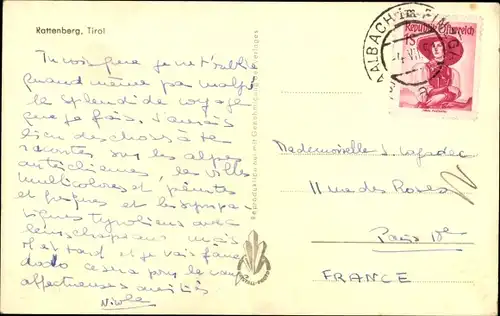 Rattenberg, Tirol
Tu vois que je ne t'oublie
quand même pas malgré
le splendide voyage
que je fais. J'aurais
bien des choses à te
raconter sur les alpes
autrichiennes, les villes
multicolores et peintes
et les sympa-
tiques tyroliens avec
leurs chapeaux mais
il est tard et je vais faire
dodo ce sera pour le
affectueuses amitiés
Nicole
Reproduktion nur mit Genehmigung des Verlages
SAALBACH im PINZGAU
Republik Österreich
Mademoiselle
11 rue des Roses
Paris 18e
FRANCE